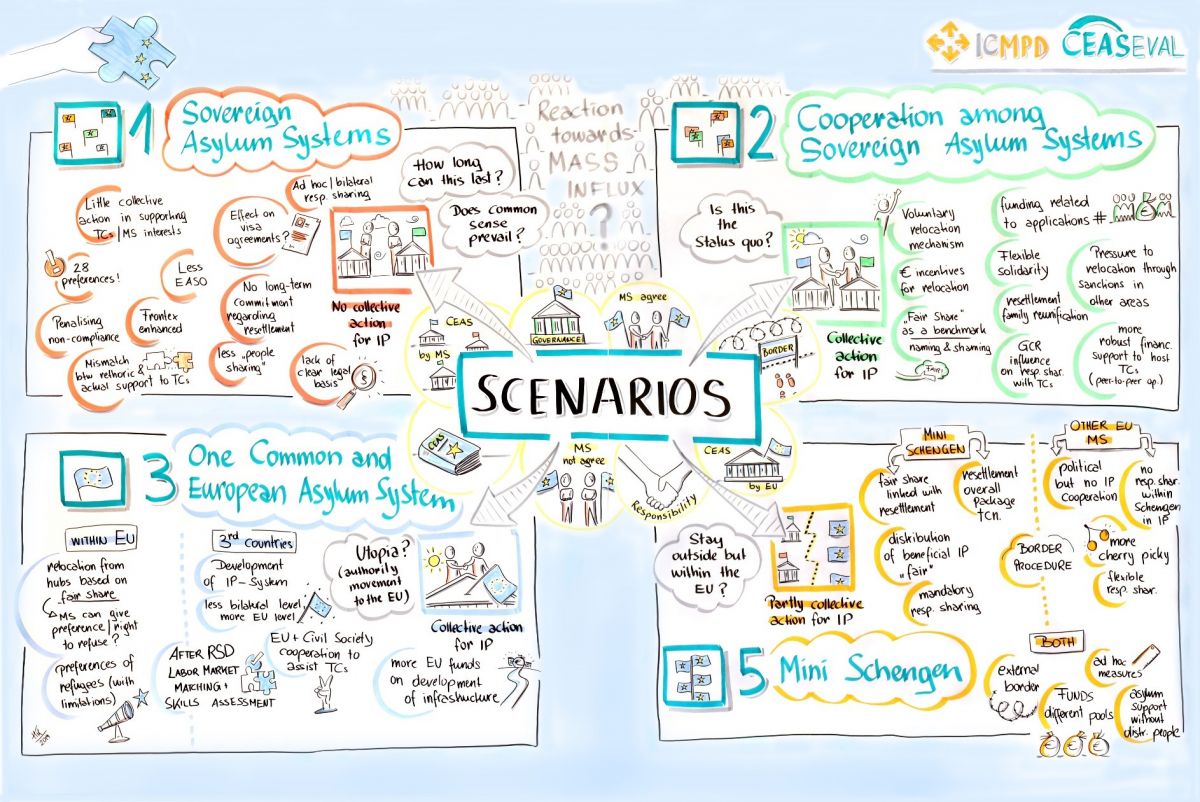 ICMPD CEASEVAL
Reaction
towards
MASS
INFLUX
?
1
Sovereign
Asylum Systems
How long
can this last?
Does common
sense
prevail?
Ad hoc/bilateral
resp. sharing
Little collective
action in supporting
TCs/MS interests
Effect on
visa
agreements?
28
preferences!
Less
EASO
No long-term
commitment
regarding
resettlement
Penalising
non-compliance
Frontex
enhanced
Mismatch
btw rethoric &
actual support to TCs
less "people
sharing"
lack of
clear legal
basis
No collective
action for IP
2
Cooperation among
Sovereign Asylum Systems
Is this
the
Status quo?
Collective
action
for IP
Voluntary
relocation
mechanism
€ incentives
for relocation
„Fair Share"
as a benchmark
naming & shaming
FAIR!
funding related
to applications #
Flexible
solidarity
resettlement
family reunification
GCR
influence
on resp. shar.
with TCs
Pressure to
relocation through
sanctions in
other areas
more
robust financ.
support to host
TCs
(peer-to-peer op.)
SCENARIOS
CEAS
by MS
GOVERNANCE
MS agree
BORDER
CEAS
by EU
Responsibility
MS
not agree
CEAS
3
One Common and
European Asylum System
WITHIN EU
relocation from
hubs based on
fair share
MS can give
preference/right
to refuse?
preferences of
refugees (with
limitations)
3rd COUNTRIES
Development
of IP-System
less bilateral level,
more EU level
EU + Civil Society
cooperation to
assist TCs
AFTER RSD
LABOR MARKET
MATCHING +
SKILLS ASSESSMENT
Utopia?
(authority
movement
to the EU)
Collective action
for IP
more EU funds
on development
of infrastructure
Stay
outside but
within the
EU?
Partly collective
action for IP
5
Mini Schengen
MINI
SCHENGEN
fair share
linked with
resettlement
resettlement
overall
package
TCN.
distribution
of beneficial IP
„fair"
mandatory
resp. sharing
OTHER EU
MS
political
but no IP
cooperation
no
resp. shar.
within
Schengen
in IP
BORDER
PROCEDURE
more
cherry picky
flexible
resp. shar.
BOTH
external
border
ad hoc
measures
FUNDS
different pools
asylum
support
without
distr. people